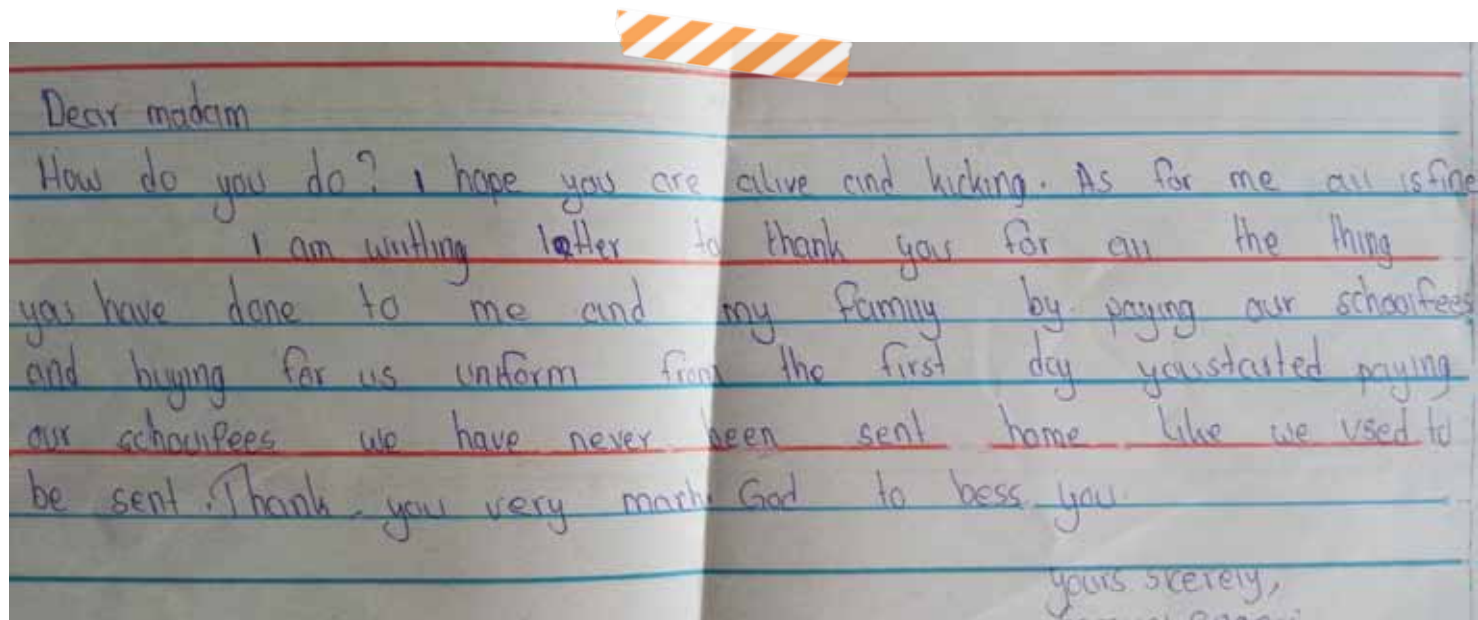 Dear madam
How do you do? I hope you are alive and kicking. As for me all is fine
I am writting letter to thank you for all the thing
you have done to me and my family by paying our schoolfees
and buying for us uniform from the first day you started paying
our schoolfees we have never been sent home like we used to
be sent. Thank you very much. God to bess you.
yours scerely,